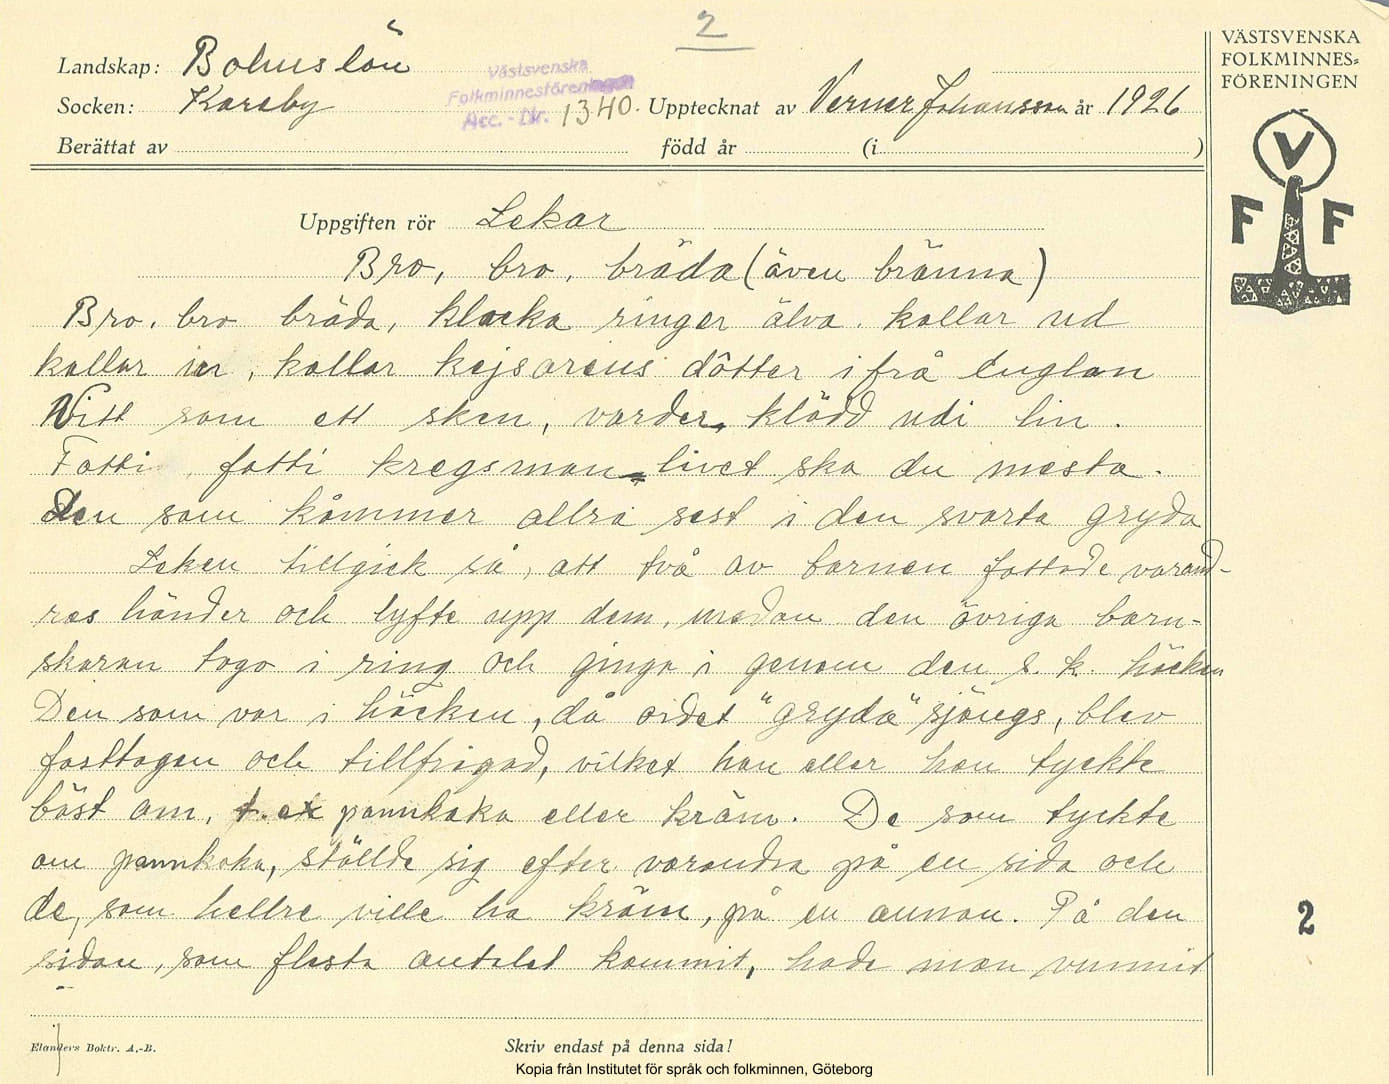 2
Landskap: Bohuslän
Västsvenska
Folkminnesföreningen
Acc.-Nr. 1340.
Socken: Kareby
Upptecknat av Verner Johansson år 1926
Berättat av född år (i )
VÄSTSVENSKA
FOLKMINNES-
FÖRENINGEN
V
F F
Uppgiften rör Lekar
Bro, bro, bräda (även bränna)
Bro, bro bräda, klocka ringer älva. kallar ud
kallar in, kallar kejsarens dötter ifrå Englan
Vitt som ett sken, varder klädd udi lin.
Fatti, fatti kregsman livet ska du mesta.
Den som kåmmer allra sest i den svarta gryda
Leken tillgick så, att två av barnen fattade varand-
ras händer och lyfte upp dem, medan den övriga barn-
skaran togo i ring och gingo i genom den s. k. häcken
Den som var i häcken, då ordet "gryda" sjöngs, blev
fasttagen och tillfrågad, vilket han eller hon tyckte
bäst om, t. ex pannkaka eller kräm. De som tyckte
om pannkaka, ställde sig efter varandra på en sida och
de, som hellre ville ha kräm, på en annan. På den
sidan, som flesta antalet kommit, hade man vunnit
2
Elanders Boktr. A.-B.
Skriv endast på denna sida!
Kopia från Institutet för språk och folkminnen, Göteborg